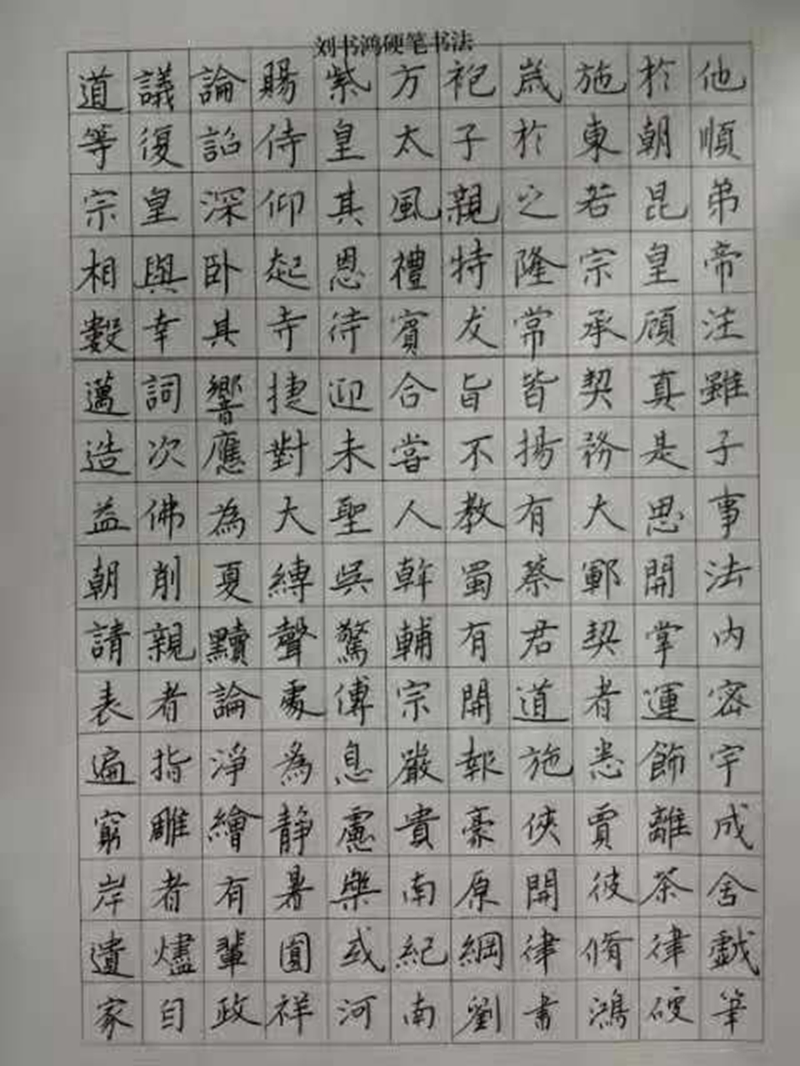 刘书鸿硬笔书法
道議論賜紫方袍歲施於他
等復詔侍皇太子於東朝順
宗皇深仰其風親之若昆弟
相與卧起恩禮特隆宗皇帝
數幸其寺待賓友常承顧注
邁詞響捷迎合旨皆契真雖
造次應對未嘗不揚務是子
益佛為大聖人教有大思事
朝削夏縛吳斡蜀蔡鄆開法
請親黷聲驚輔有君契掌內
表者論處傳宗開道者運密
遍指淨為息嚴報施悉飾宇
窮雕繪靜慮貴豪俠賈離成
岸者有暑樂南原開彼茶舍
遺燼輩圓或紀綱律脩律戲
家目政祥河南劉書鴻硬筆